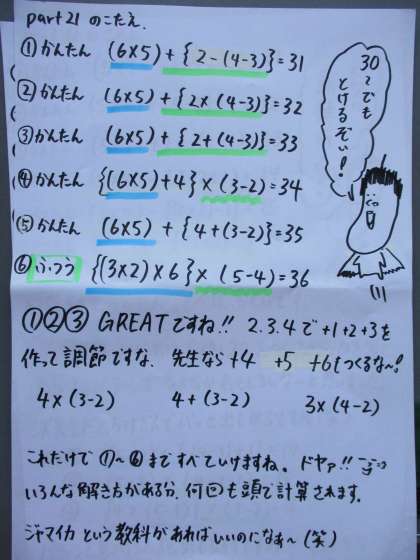 part21 のこたえ.
① かんたん (6×5)+{2-(4-3)}=31
② かんたん (6×5)+{2×(4-3)}=32
③ かんたん (6×5)+{2+(4-3)}=33
④ かんたん {(6×5)+4}×(3-2)=34
⑤ かんたん (6×5)+{4+(3-2)}=35
⑥ ふつう {(3×2)×6}×(5-4)=36
30〜でも
とけるぞい!
①②③ GREATですね!! 2.3.4で+1+2+3を
作って調節ですな. 先生なら+4 +5 +6もつくるな〜!
4×(3-2) 4+(3-2) 3×(4-2)
これだけで①〜⑥まですべていけますね。ドヤァ!!
いろんな解き方がある分、何回も頭で計算されます。
ジャマイカという教科があればいいのになあ〜(笑)